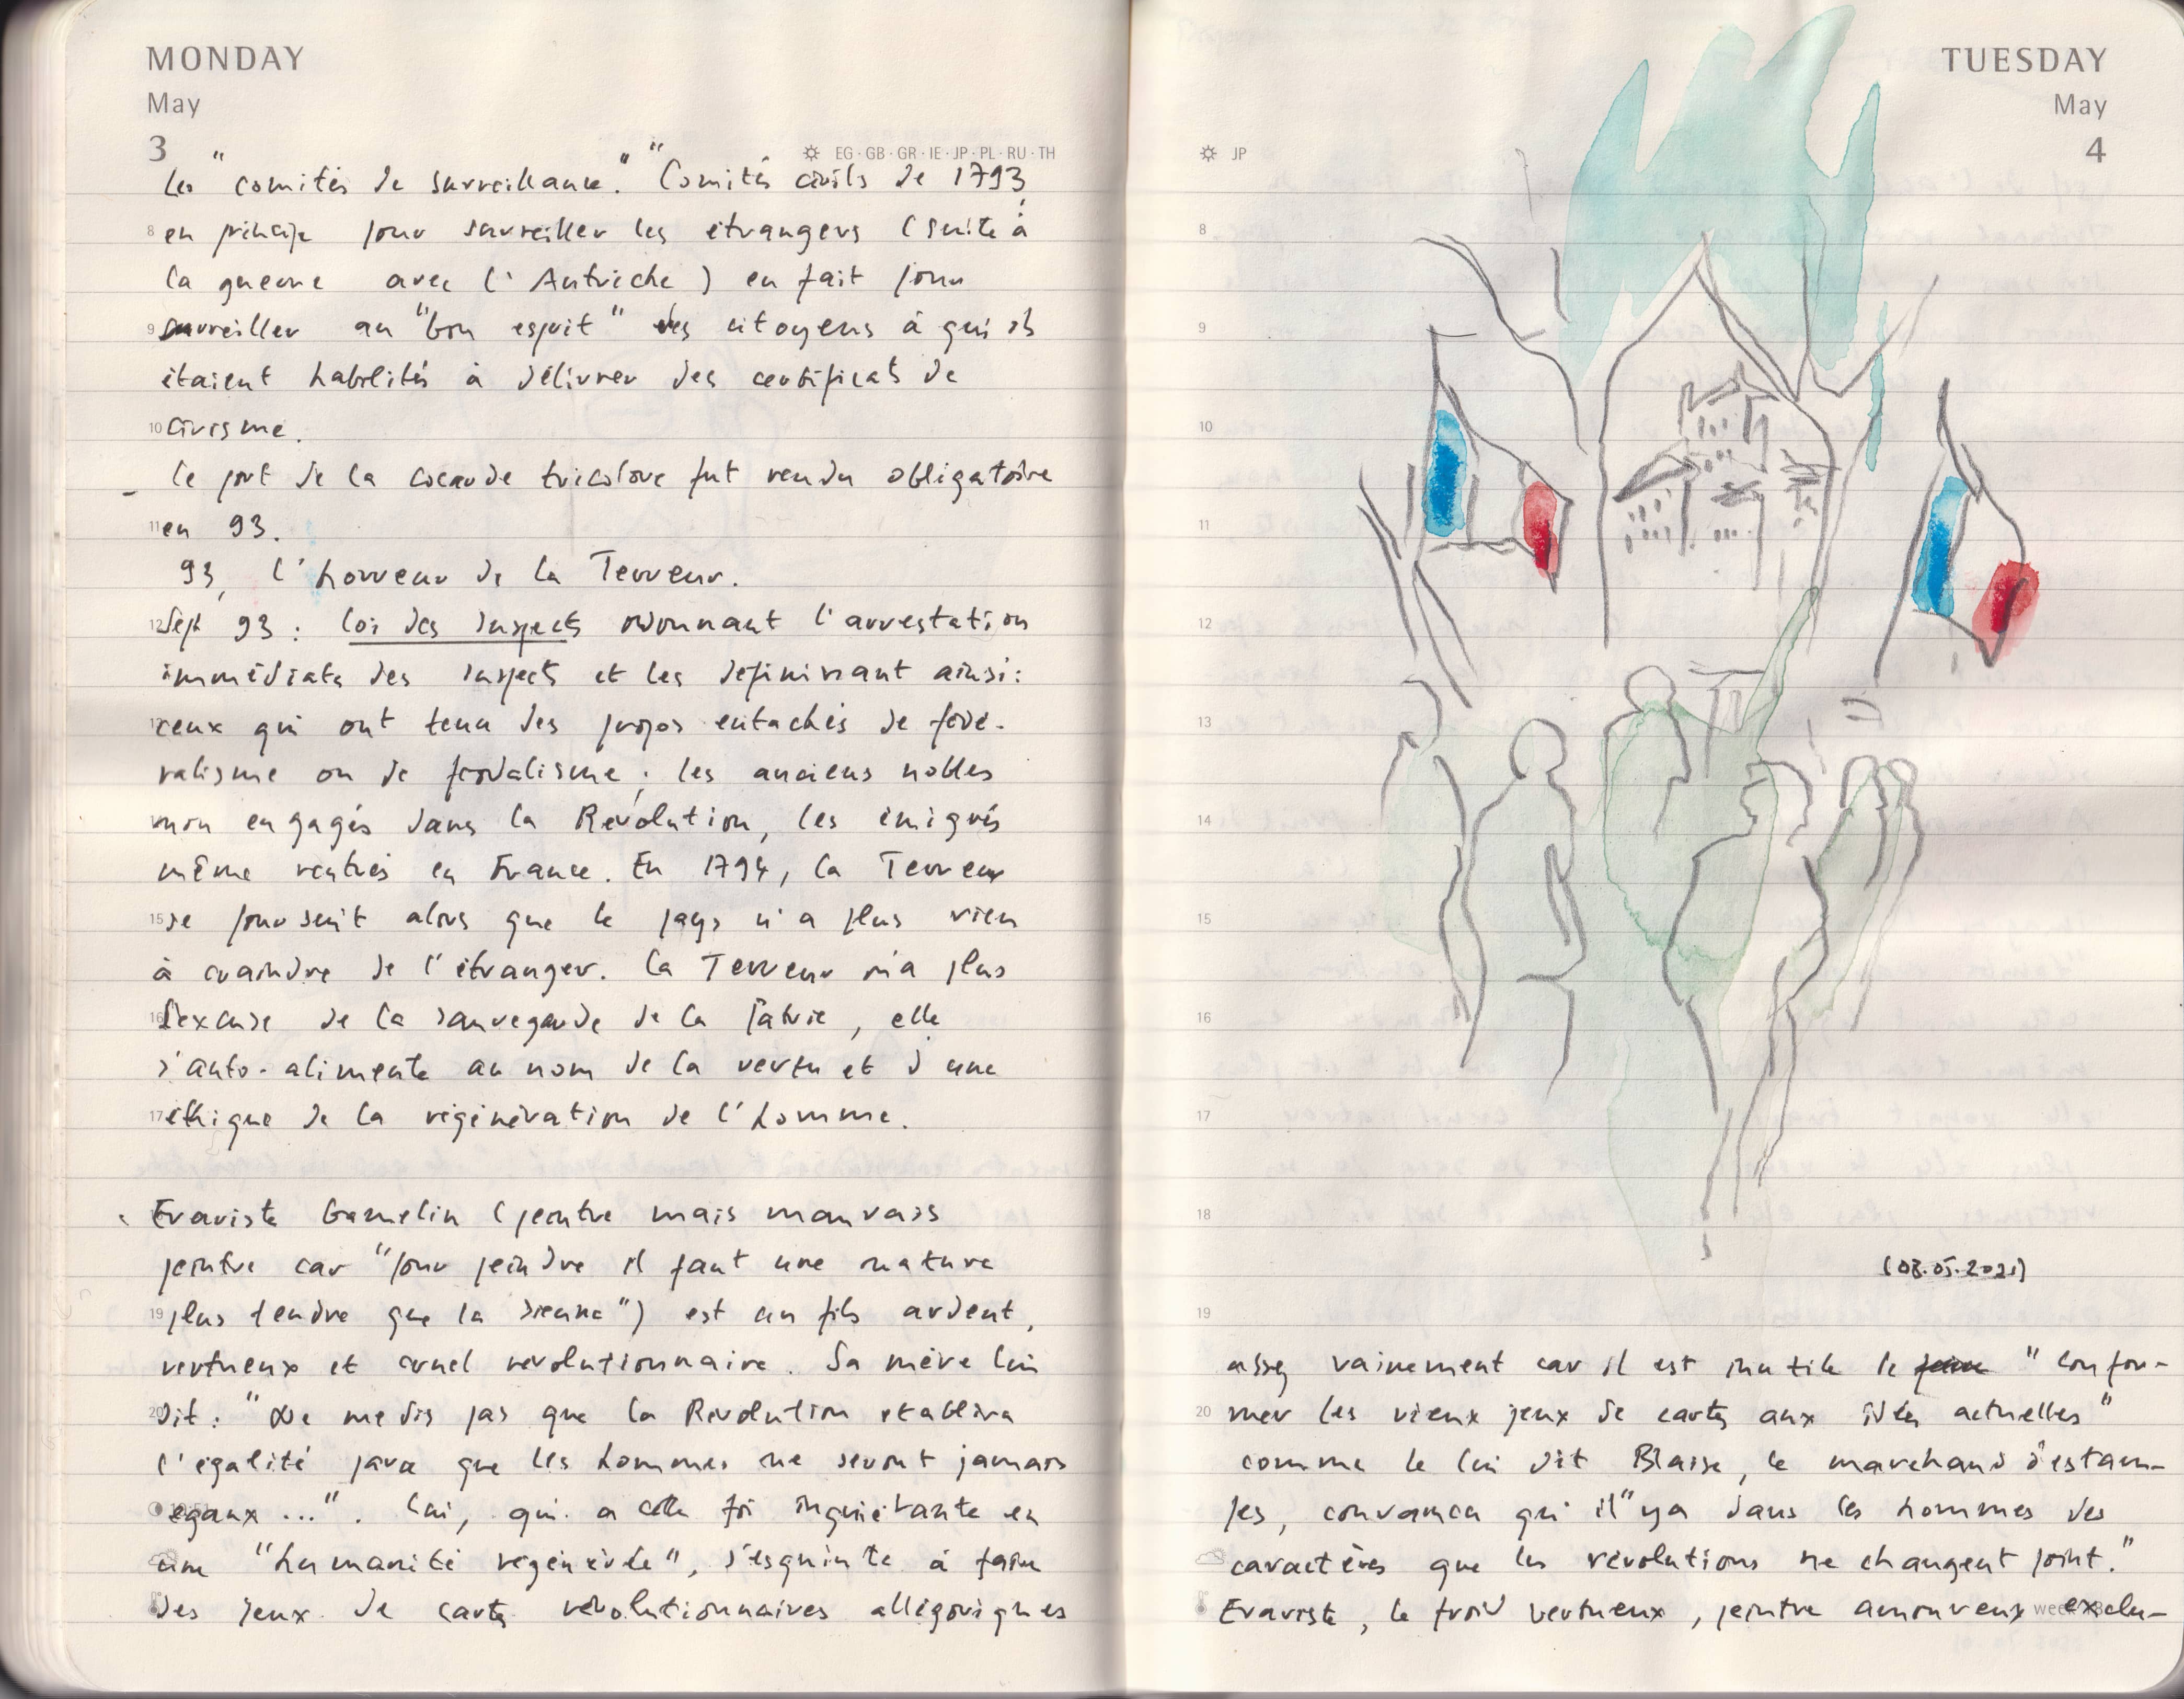 MONDAY
May
3
EG · GB · GR · IE · JP · PL · RU · TH
Les "comités de surveillance." "Comités civils de 1793,
8 en principe pour surveiller les étrangers (suite à
la guerre avec l'Autriche) en fait pour
9 surveiller au "bon esprit" des citoyens à qui ils
étaient habilités à délivrer des certificats de
10 civisme.
- le port de la cocarde tricolore fut rendu obligatoire
11 en 93.
93, l'horreur de la Terreur.
12 Sept 93 : loi des suspects ordonnant l'arrestation
immédiate des suspects et les définissant ainsi :
13 ceux qui ont tenu des propos entachés de fédé-
ralisme ou de féodalisme ; les anciens nobles
14 non engagés dans la Révolution, les émigrés
même rentrés en France. En 1794, la Terreur
15 se poursuit alors que le pays n'a plus rien
à craindre de l'étranger. La Terreur n'a plus
16 l'excuse de la sauvegarde de la Patrie, elle
s'auto-alimente au nom de la vertu et d'une
17 éthique de la régénération de l'homme.
Evariste Gamelin (peintre mais mauvais
peintre car "pour peindre il faut une nature
19 plus tendre que la sienne") est un fils ardent,
vertueux et cruel révolutionnaire. Sa mère lui
20 dit : "Ne me dis pas que la Révolution établira
l'égalité parce que les hommes ne seront jamais
égaux ...". Lui, qui a cette foi inquiétante en
une "humanité régénérée", s'esquinte à faire
des jeux de cartes révolutionnaires allégoriques
TUESDAY
May
4
JP
8
9
10
11
12
13
14
15
16
17
18
(03.05.2021)
19
assez vainement car il est inutile le faire "confor-
20 mer les vieux jeux de cartes aux idées actuelles"
comme le lui dit Blaise, le marchand d'estam-
pes, convaincu qu'il "y a dans les hommes des
caractères que les révolutions ne changent point."
Evariste, le froid vertueux, peintre amoureux exclu-
week